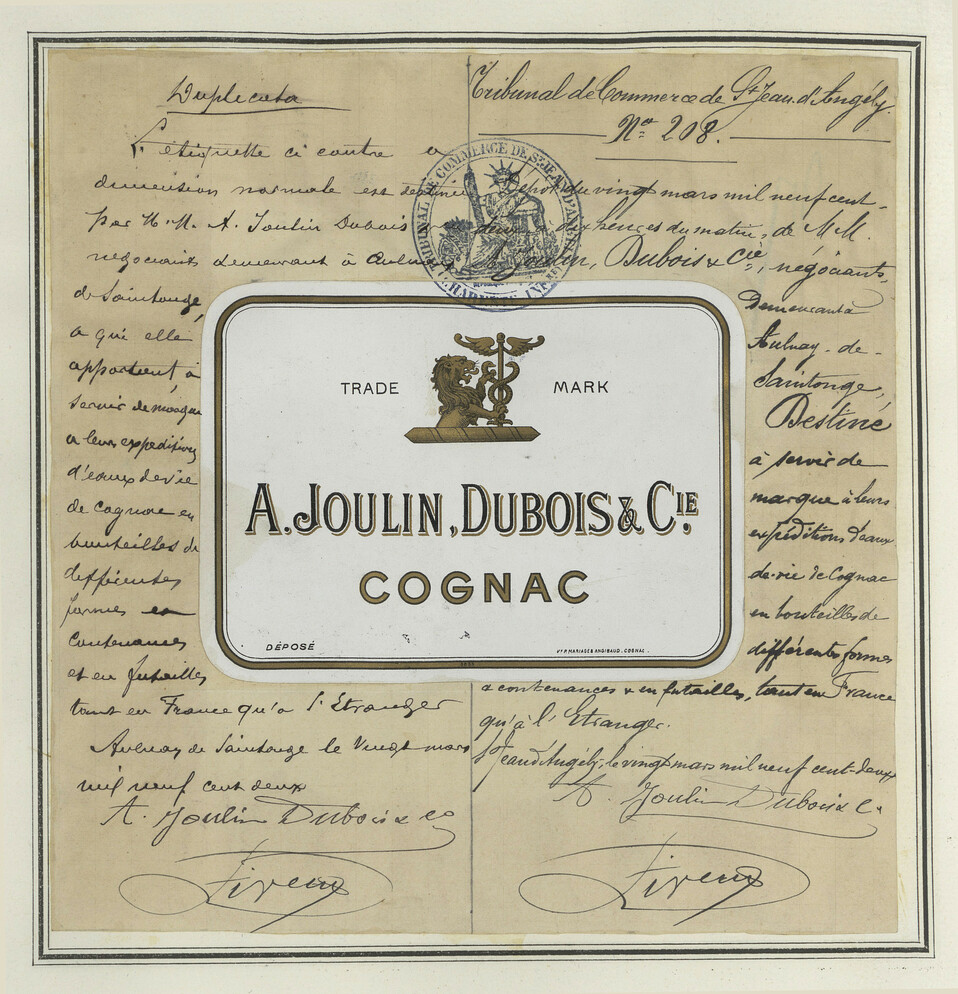 Duplicata
L'étiquette ci contre a
dimension normale est destinée
par M.M. A. Joulin Dubois &
négociants demeurant à Aulnay
de Saintonge,
a qui elle
appartient, à
servir de marque
a leurs expéditions
d'eaux de vie
de Cognac en
bouteilles de
différentes
formes et
contenances
et en futailles
tant en France qu'a l'Etranger
Aulnay de Saintonge le Vingt mars
mil neuf cent deux
A. Joulin Dubois & Co
Tribunal de Commerce de St Jean d'Angély.
No 208.
du vingt mars mil neuf cent-
deux à dix heures du matin, de M.M.
A. Joulin, Dubois & Cie, négociants,
Demeurant à
Aulnay-de-
Saintonge,
Destiné
à servir de
marque à leurs
expéditions d'eaux
de-vie de Cognac
en bouteilles de
différentes formes
& contenances & en futailles, tant en France
qu'à l'Etranger.
St Jean d'Angély, le vingt mars mil neuf cent-deux
A. Joulin Dubois & Co
TRIBUNAL DE COMMERCE DE ST JEAN D'ANGELY
CHARENTE INFRE
TRADE MARK
A. JOULIN, DUBOIS & CIE.
COGNAC
DÉPOSÉ
VVE P. MARIAGE & ANGIBAUD, COGNAC.